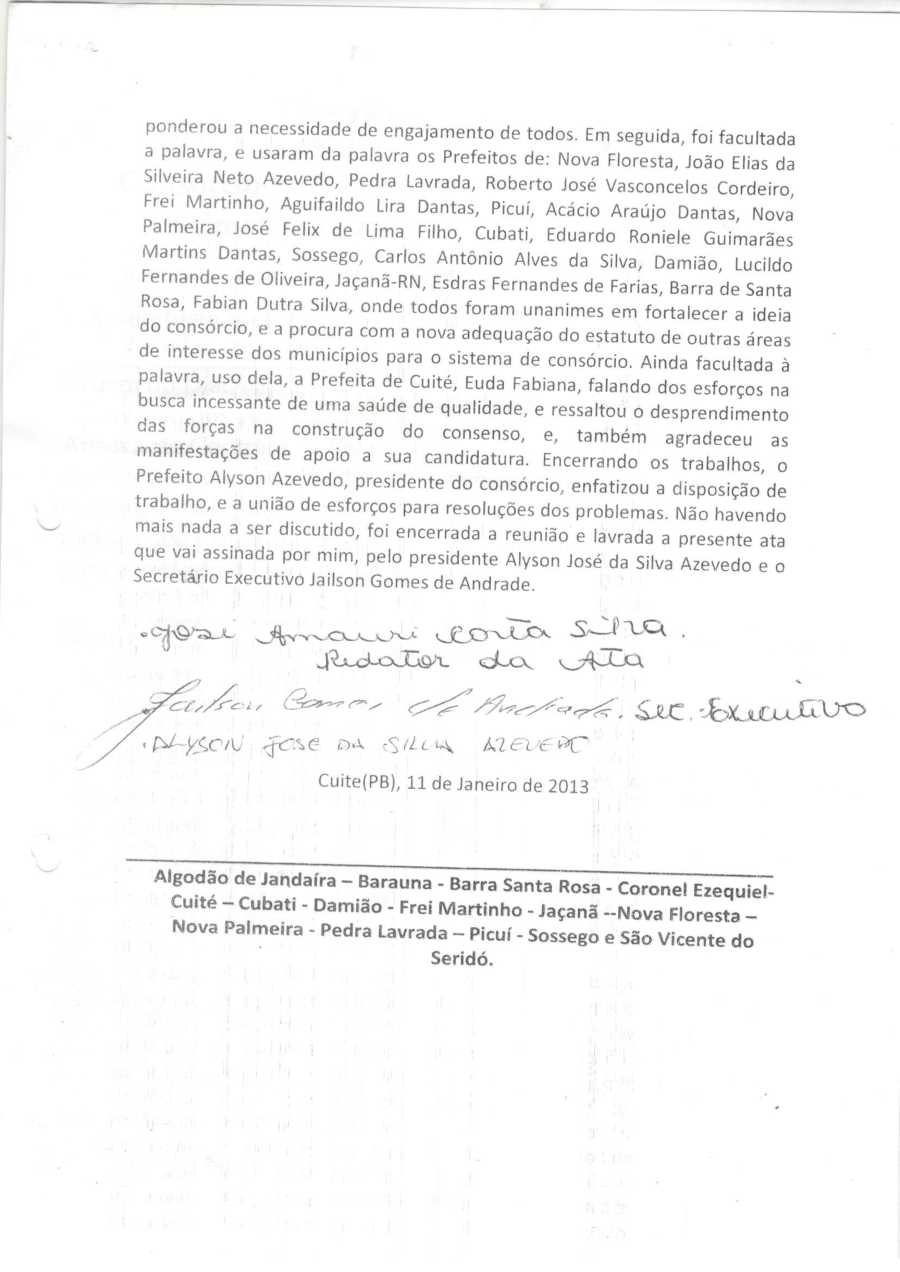 ponderou a necessidade de engajamento de todos. Em seguida, foi facultada
a palavra, e usaram da palavra os Prefeitos de: Nova Floresta, João Elias da
Silveira Neto Azevedo, Pedra Lavrada, Roberto José Vasconcelos Cordeiro,
Frei Martinho, Aguifaildo Lira Dantas, Picuí, Acácio Araújo Dantas, Nova
Palmeira, José Felix de Lima Filho, Cubati, Eduardo Roniele Guimarães
Martins Dantas, Sossego, Carlos Antônio Alves da Silva, Damião, Lucildo
Fernandes de Oliveira, Jaçanã-RN, Esdras Fernandes de Farias, Barra de Santa
Rosa, Fabian Dutra Silva, onde todos foram unanimes em fortalecer a ideia
do consórcio, e a procura com a nova adequação do estatuto de outras áreas
de interesse dos municípios para o sistema de consórcio. Ainda facultada à
palavra, uso dela, a Prefeita de Cuité, Euda Fabiana, falando dos esforços na
busca incessante de uma saúde de qualidade, e ressaltou o desprendimento
das forças na construção do consenso, e, também agradeceu as
manifestações de apoio a sua candidatura. Encerrando os trabalhos, o
Prefeito Alyson Azevedo, presidente do consórcio, enfatizou a disposição de
trabalho, e a união de esforços para resoluções dos problemas. Não havendo
mais nada a ser discutido, foi encerrada a reunião e lavrada a presente ata
que vai assinada por mim, pelo presidente Alyson José da Silva Azevedo e o
Secretário Executivo Jailson Gomes de Andrade.
José Amauri Costa Silva.
Redator da Ata
Jailson Gomes de Andrade. Sec. Executivo
ALYSON JOSE DA SILVA AZEVEDO
Cuite(PB), 11 de Janeiro de 2013
Algodão de Jandaíra – Barauna - Barra Santa Rosa - Coronel Ezequiel-
Cuité – Cubati - Damião - Frei Martinho - Jaçanã --Nova Floresta –
Nova Palmeira - Pedra Lavrada – Picuí - Sossego e São Vicente do
Seridó.